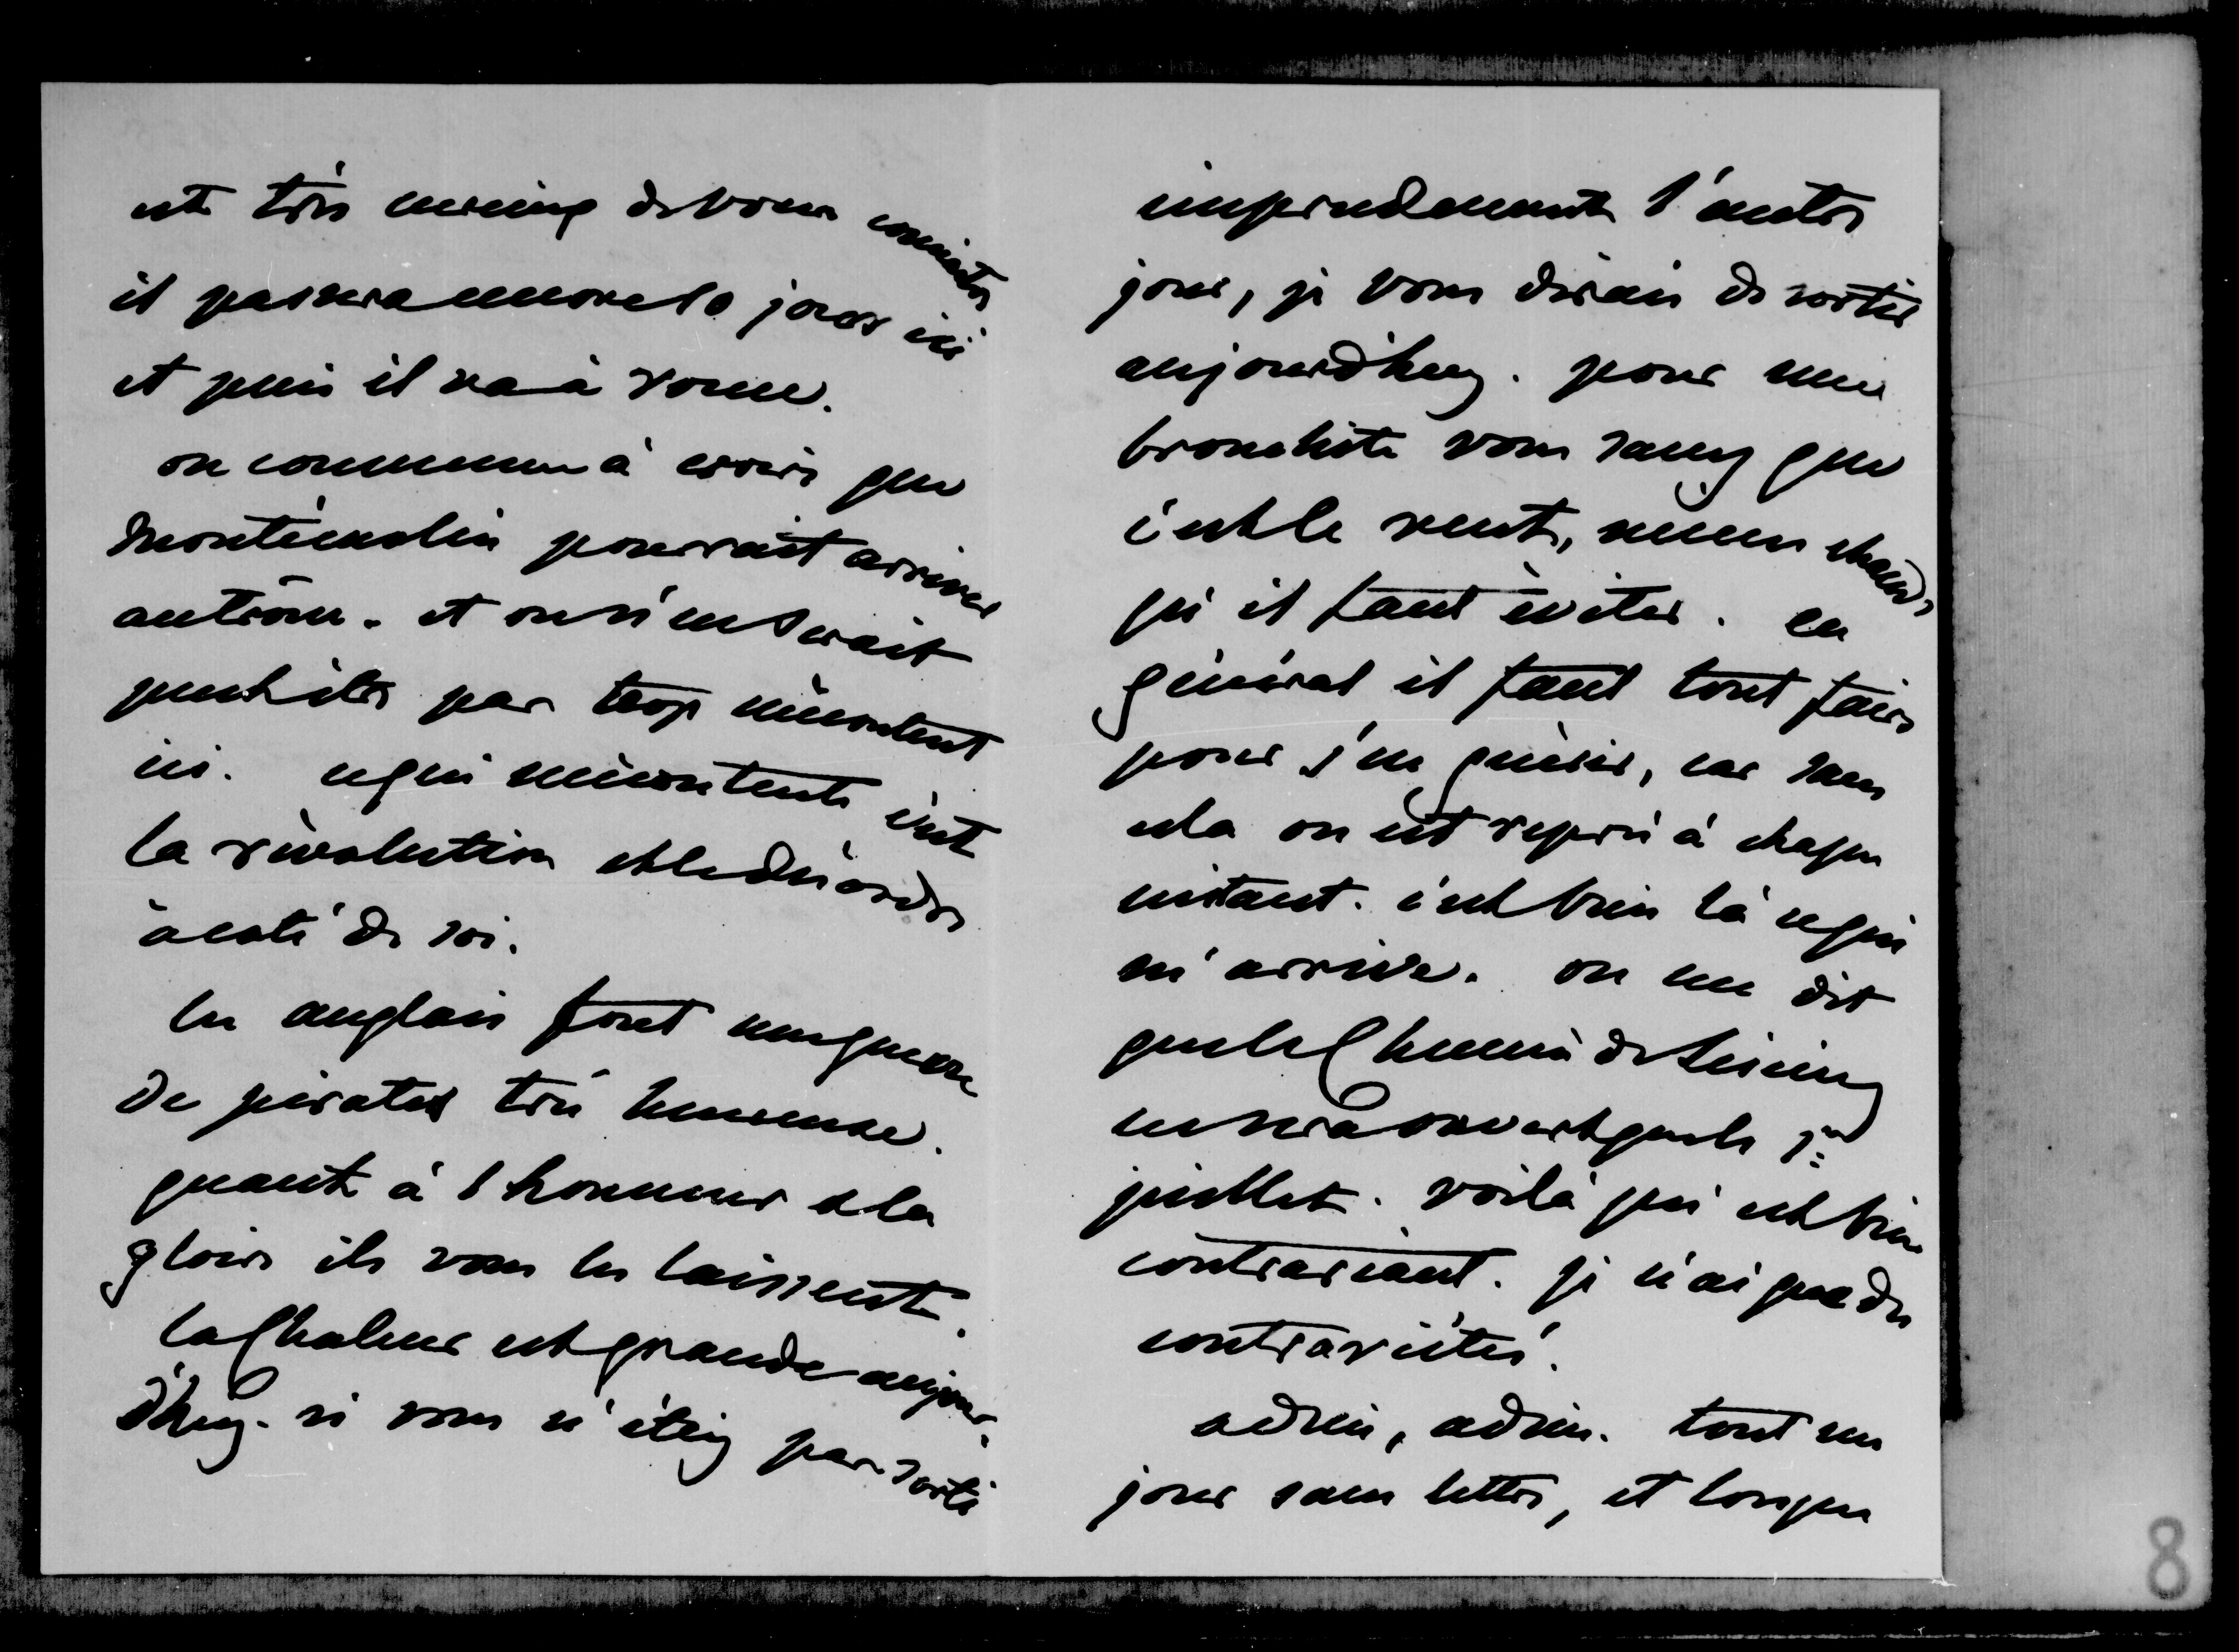 est très curieux de vous connaitre
il passera encore 10 jours ici
et puis il va à rome.
on commence à croire que
Montémolin pourrait arriver
au trône. et on n'en serait
peut être pas trop mécontent
ici. ce qui mécontente c'est
la révolution et le désordre
à coté de soi.
les anglais font une guerre
de pirates très heureuse.
quant à l honneur et la
gloire ils vous les laissent.
la Chaleur est grande aujour-
d'huy. si vous n'étiez pas sorti
imprudemment l'autre
jour, je vous dirais de sortir
aujourdhuy. pour une
bronchite vous savez que
c'est le vent, même chaud,
qu'il faut éviter. en
général il faut tout faire
pour s'en guérir, car sans
cela on est repris à chaque
instant. c'est bien là ce qui
m'arrive. on me dit
que le Chemin de
ne sera ouvert que le 1er
juillet. voilà qui est bien
contrariant. je n'ai que des
contrariétés.
adieu, adieu. tout un
jour sans lettre, et longue
8